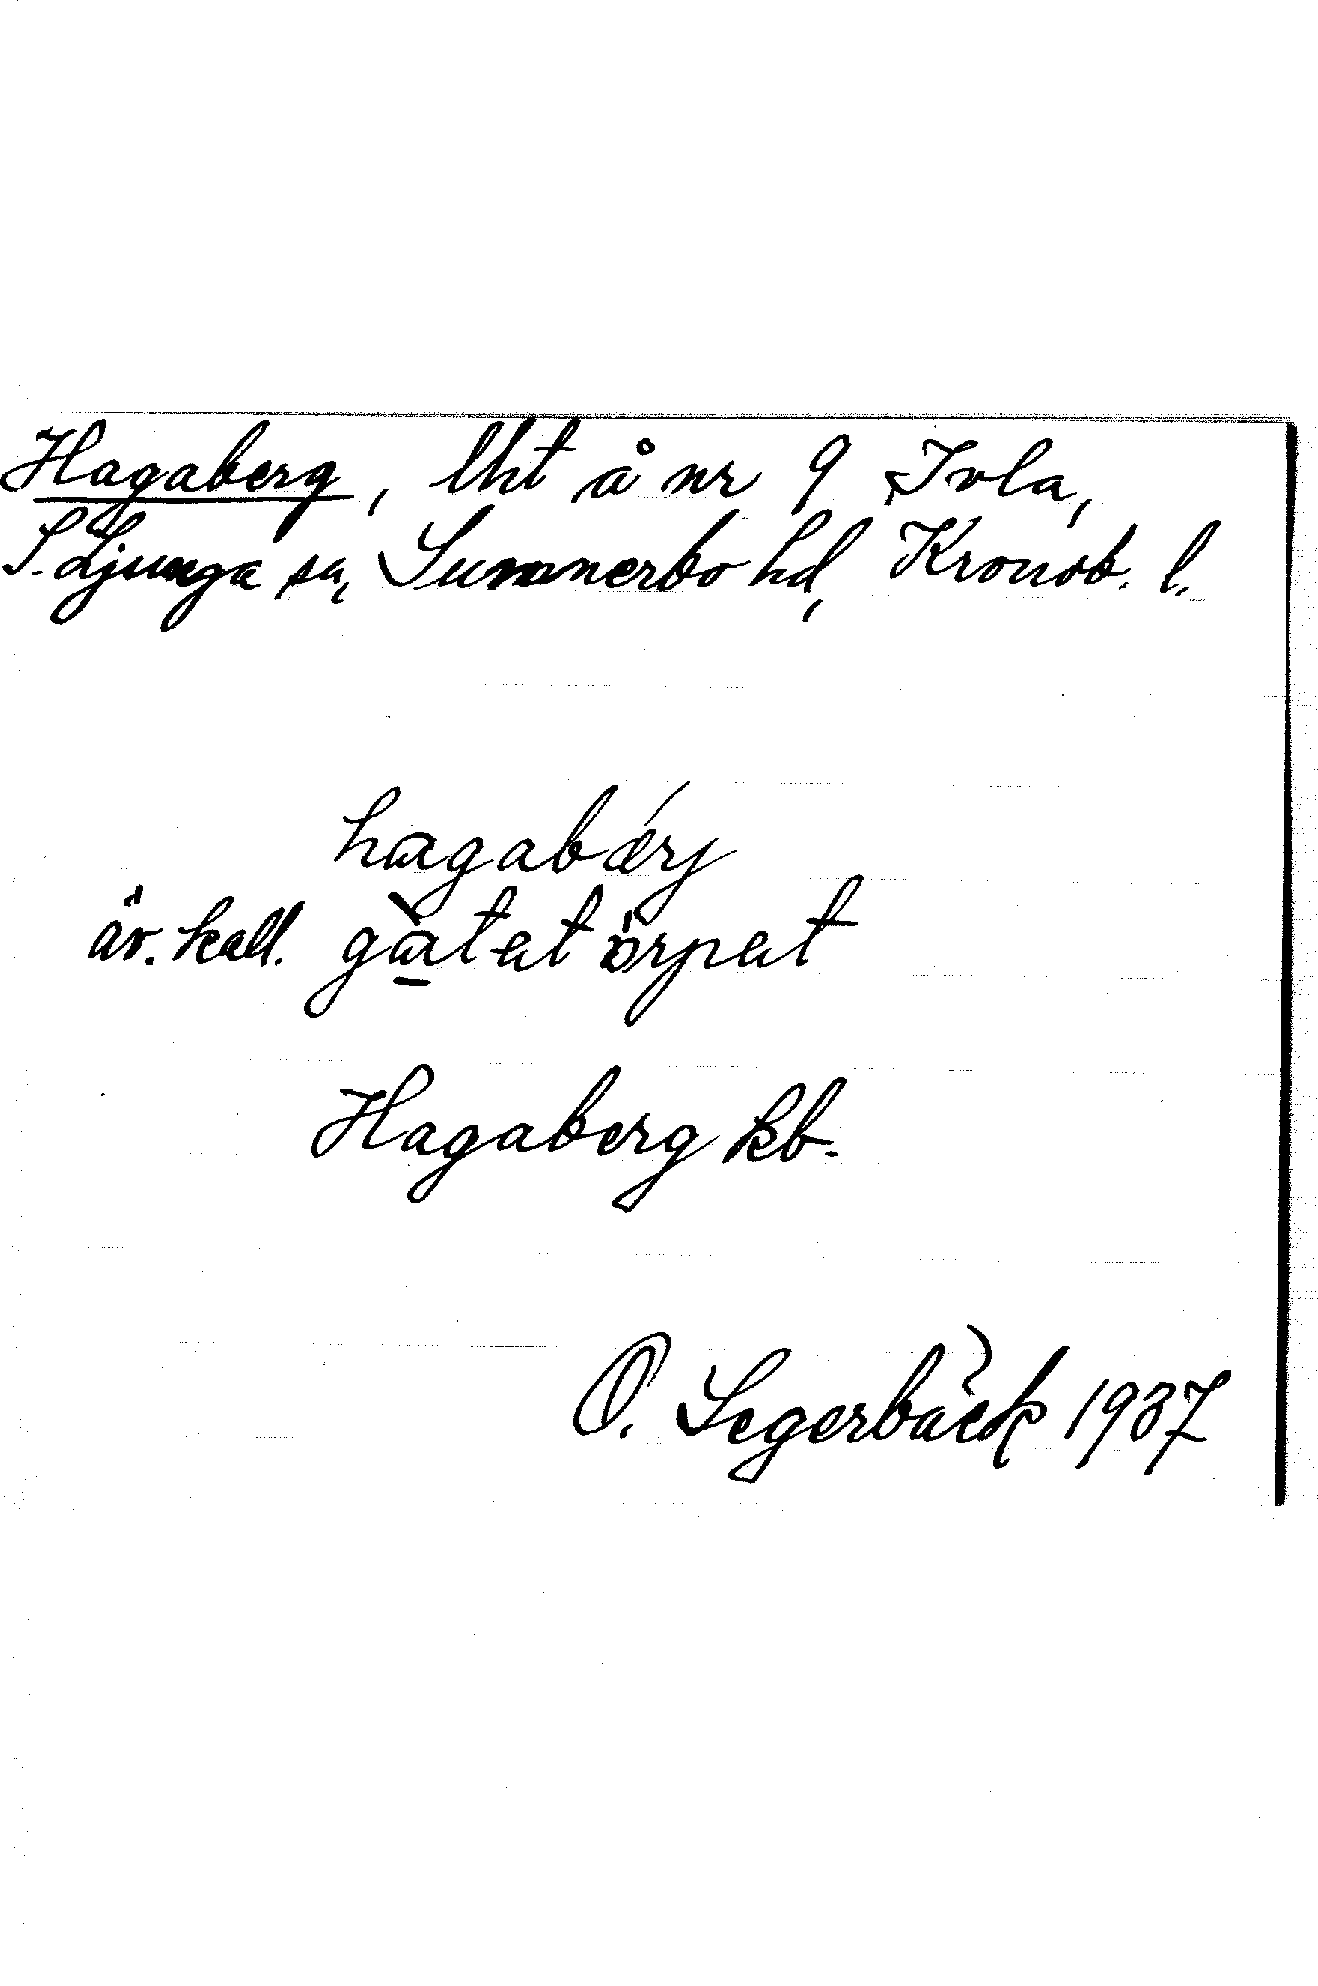 Hagaberg, lht å nr 9 Ivla,
S. Ljunga sn, Sunnerbo hd, Kronob. l.
hagabærj
äv. kall. gatetörpet
Hagaberg kb.
O. Segerbäck 1937